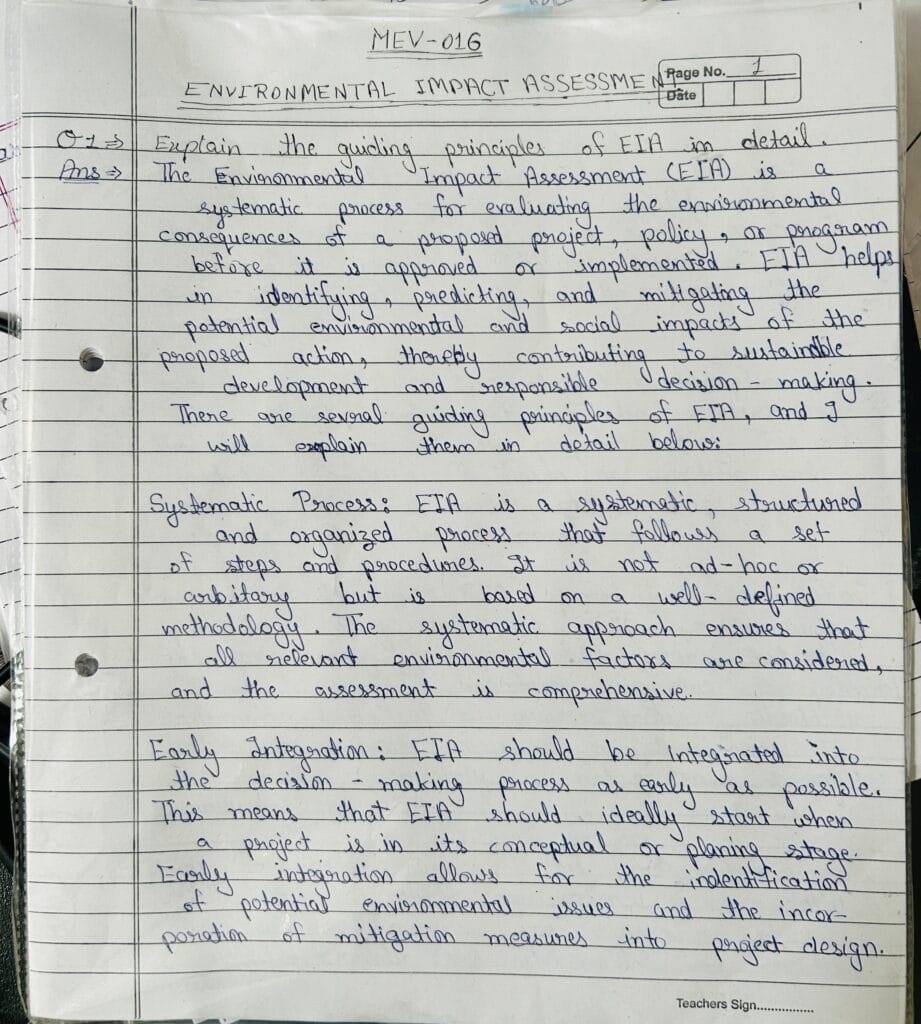 MEV-016
ENVIRONMENTAL IMPACT ASSESSMENT
Page No. 1
Date
Q-1⇒ Explain the guiding principles of EIA in detail.
Ans⇒ The Environmental Impact Assessment (EIA) is a
systematic process for evaluating the environmental
consequences of a proposed project, policy, or program
before it is approved or implemented. EIA helps
in identifying, predicting, and mitigating the
potential environmental and social impacts of the
proposed action, thereby contributing to sustainable
development and responsible decision - making.
There are several guiding principles of EIA, and I
will explain them in detail below:
Systematic Process: EIA is a systematic, structured
and organized process that follows a set
of steps and procedures. It is not ad-hoc or
arbitary but is based on a well- defined
methodology. The systematic approach ensures that
all relevant environmental factors are considered,
and the assessment is comprehensive.
Early Integration: EIA should be integrated into
the decision - making process as early as possible.
This means that EIA should ideally start when
a project is in its conceptual or planing stage.
Early integration allows for the indentification
of potential environmental issues and the incor-
poration of mitigation measures into project design.
Teachers Sign................